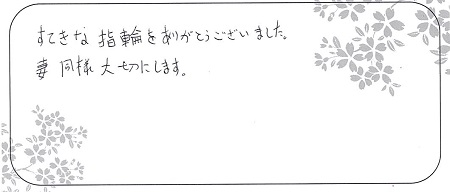 すてきな指輪をありがとうございました。
妻同様大切にします。